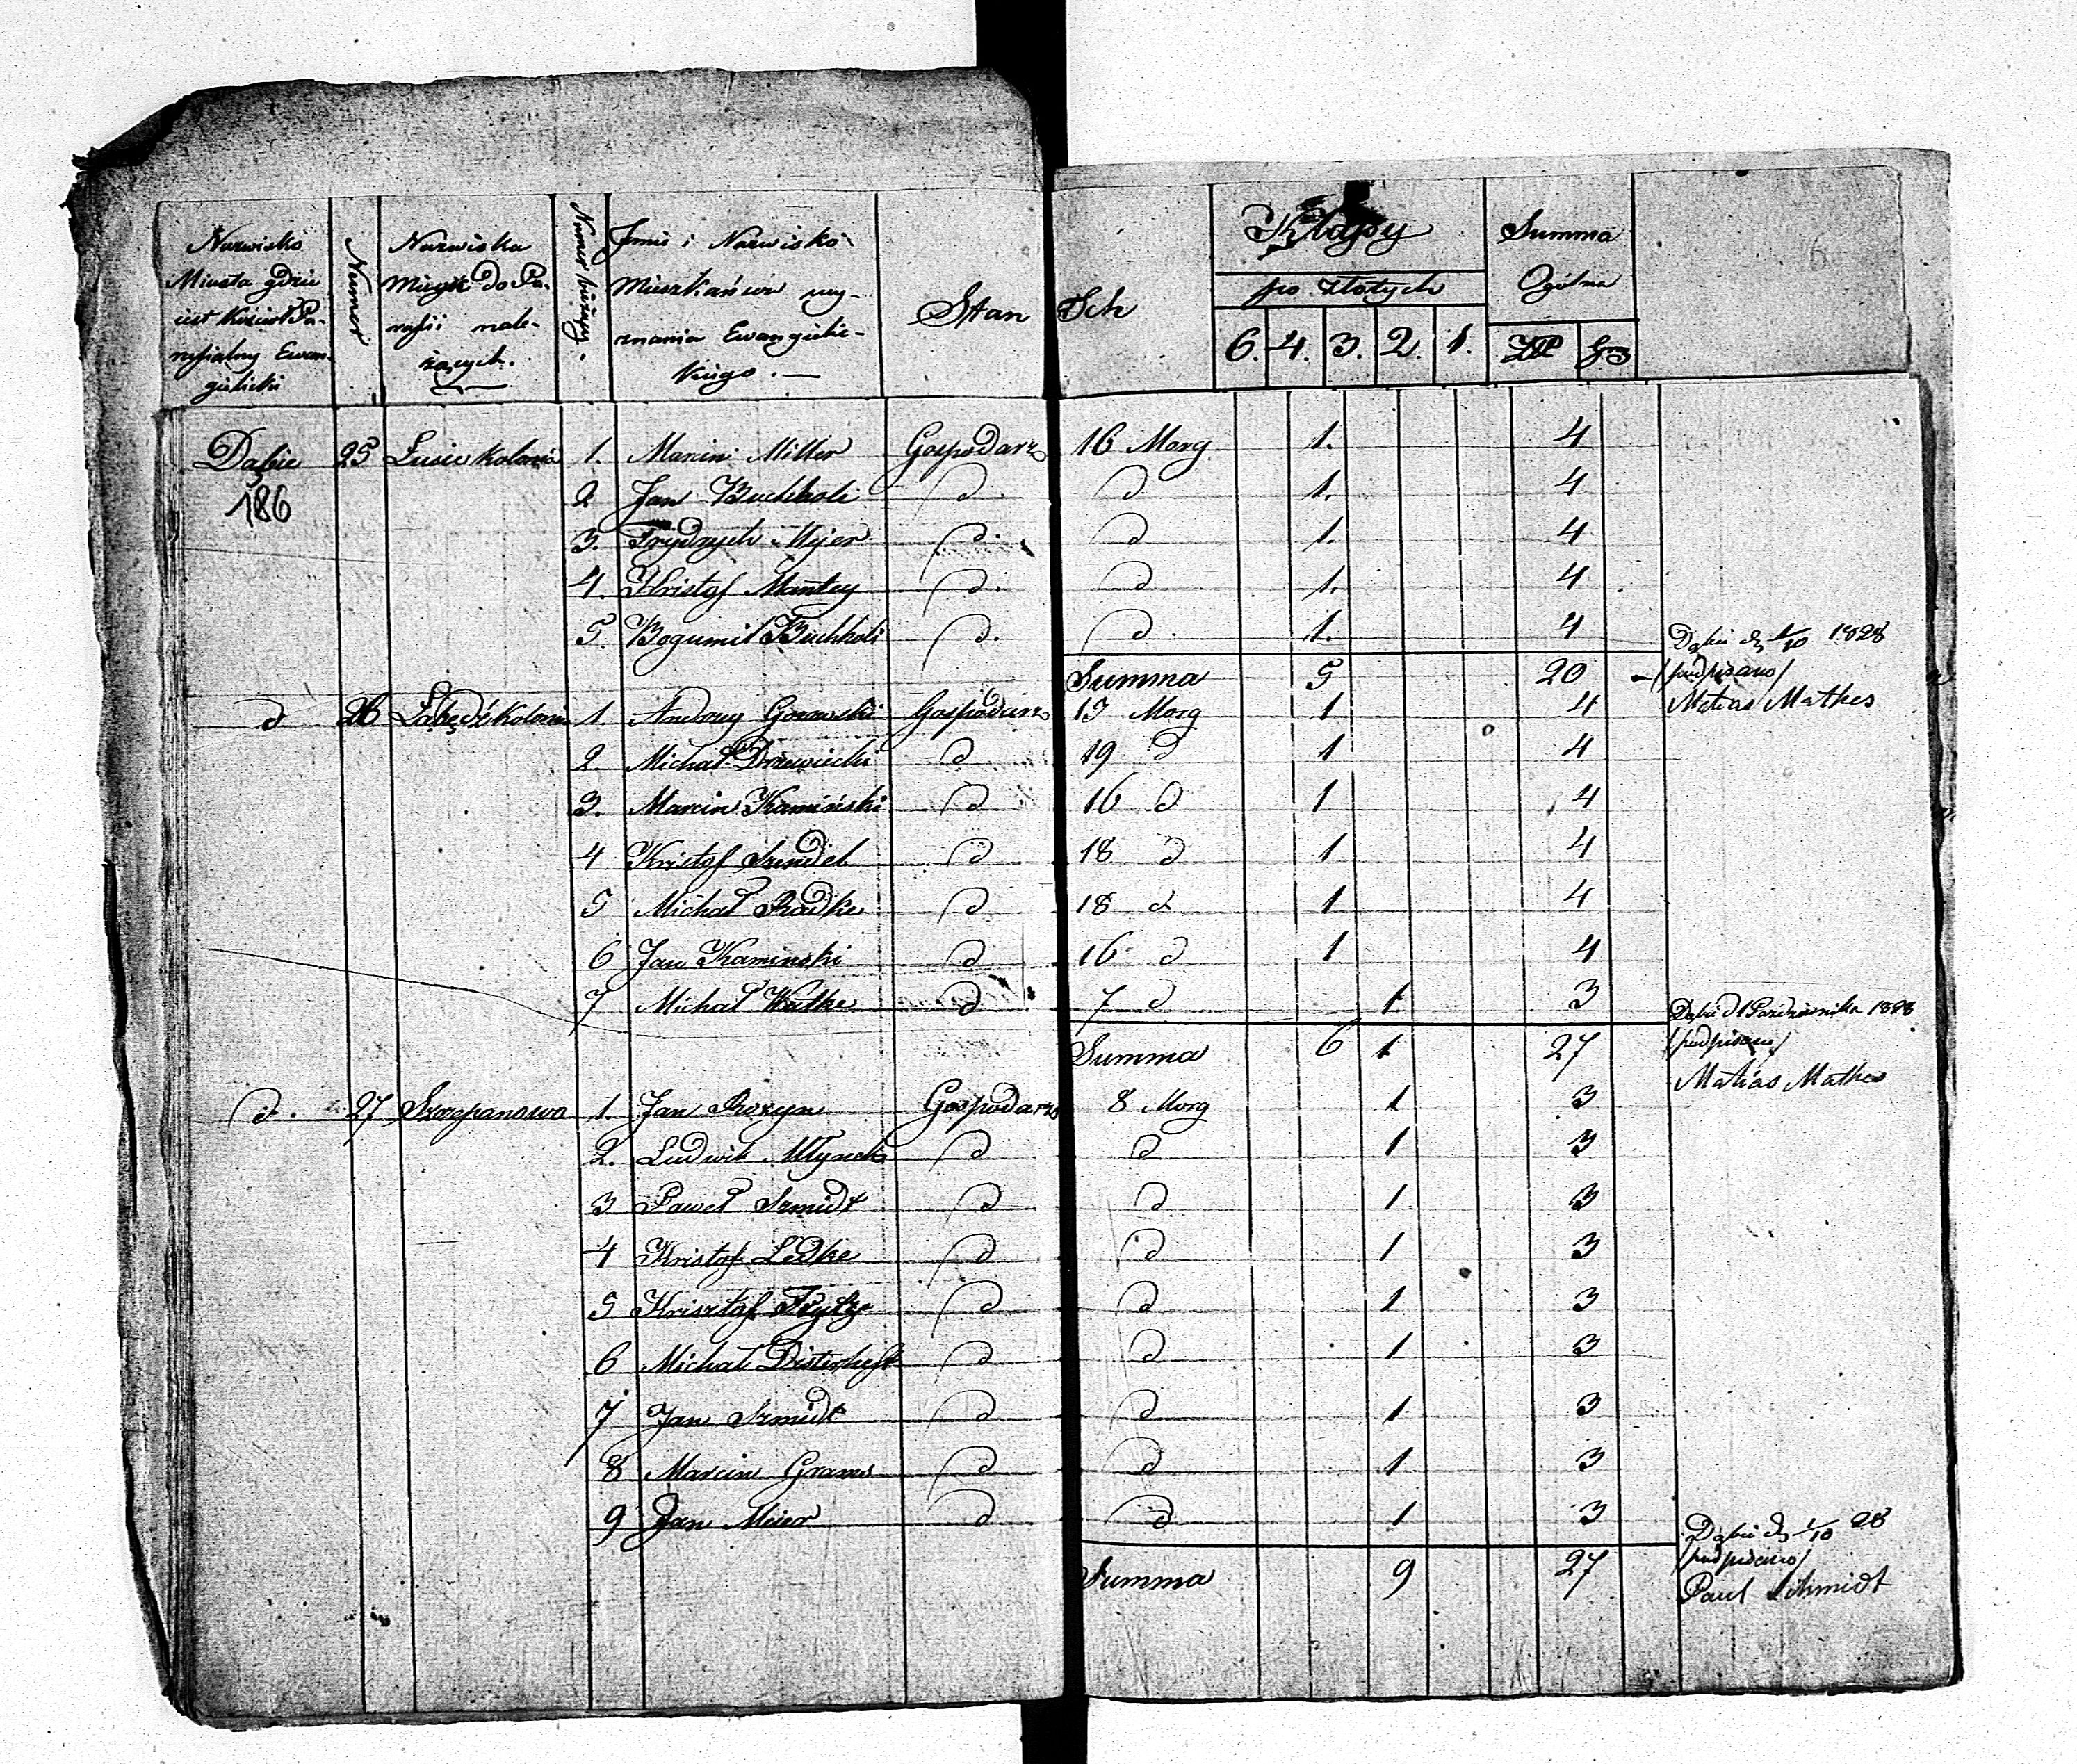 Nazwisko Miasta gdzie iest Kościoł Parafialny Ewangielicki | Numer | Nazwiska Mieysc do Parafii należących. | Numer bieżący. | Jmie i Nazwisko Mieszkańców wyznania Ewangielickiego. | Stan | Sch | Klassy po złotych 6. 4. 3. 2. 1. | Summa Ogólna ZP gr
Dąbie 25 Lusie Kolonia 1. Marcin Miller Gospodarz 16 Morg. 1. 4
186 2 Jan Buchholi d. d 1. 4
3. Frydrych Mejer d. d 1. 4
4. Kristof Mantey d. d 1. 4
5. Bogumił Buchholi d. d. 1. 4
Summa 5 20 -
Dąbie d. 1/10 1828
/podpisano/
Matias Mathes
d 26 Łabędź Kolonia 1 Andrzey Gorowski Gospodarz 15 Morg 1 4
2 Michał Drzewiecki d 19 d 1 4
3. Marcin Kamiński d 16 d 1 4
4 Kristof Szendel d 18 d 1 4
5 Michał Radke d 18 d 1 4
6 Jan Kaminski d 16 d 1 4
7 Michał Watke d 7 d 1 3
Summa 6 1 27
Dąbie d 1 Października 1828
/podpisano/
Matias Mathes
d. 27 Szczepanowo 1. Jan Rozyn Gospodarz 8 Morg 1 3
2. Ludwik Młynek d d 1 3
3 Paweł Szmidt d d 1 3
4 Kristof Ledke d d 1 3
5 Krisztof Frytze d d 1 3
6 Michał Disterheft d d 1 3
7 Jan Szmidt d d 1 3
8 Marcin Grams d d 1 3
9 Jan Meier d d 1 3
Summa 9 27
Dąbie d. 1/10 28
/podpisano/
Paul Schmidt